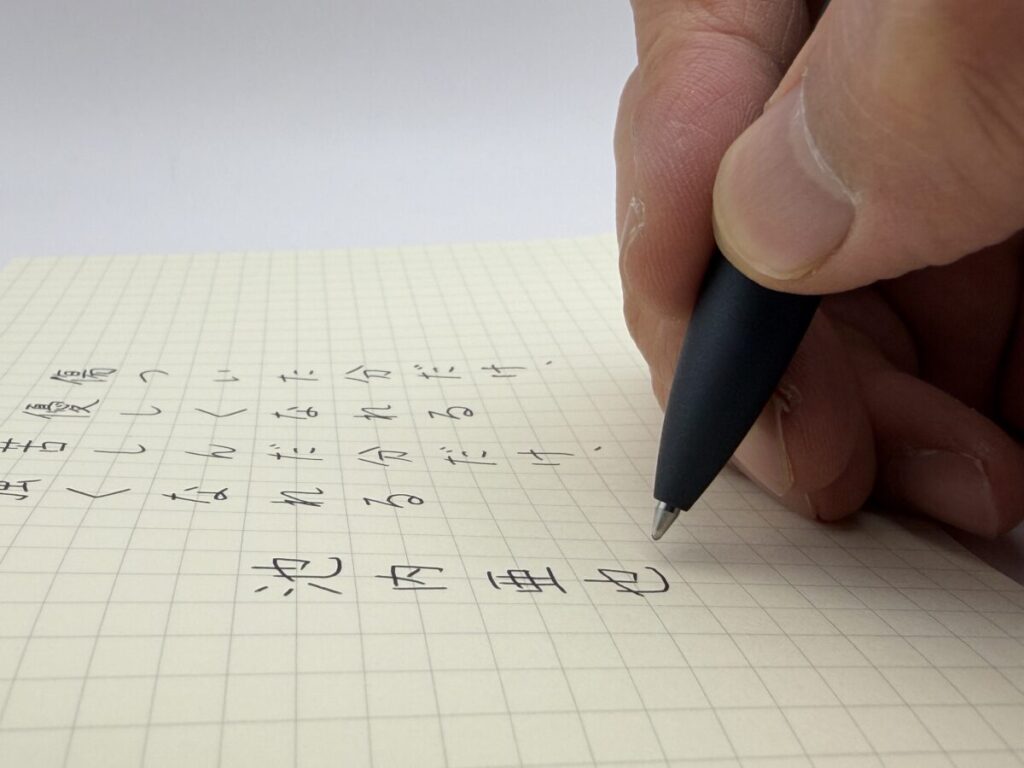 傷ついた分だけ、
優しくなれる
苦しんだ分だけ、
強くなれる
池内亜也